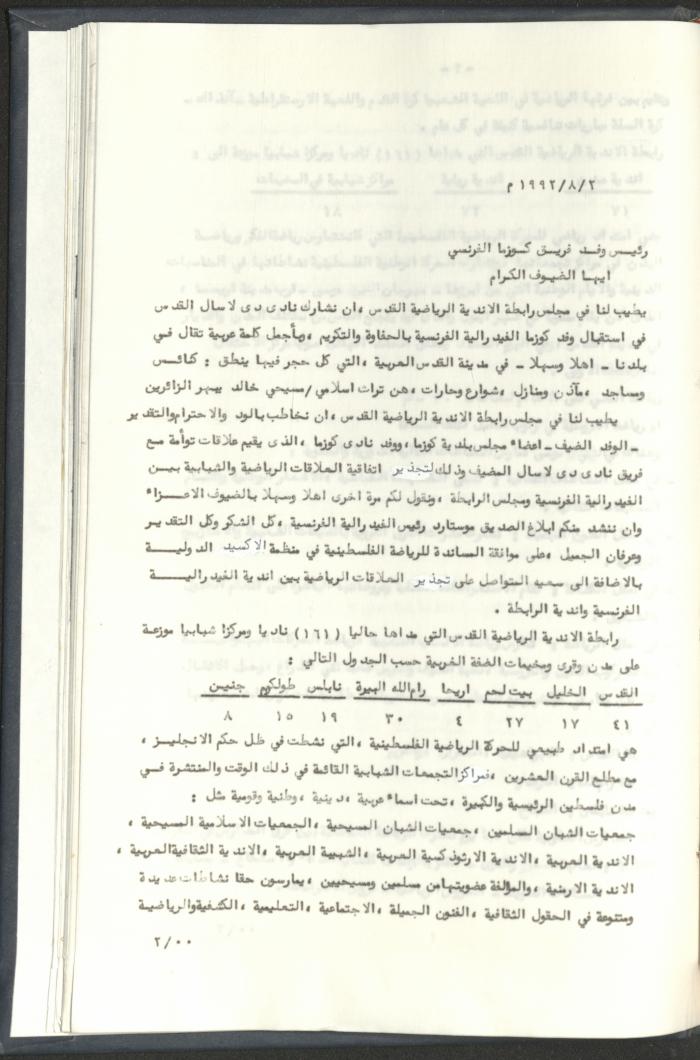 ١٩٩٢/٨/٢ م
رئيس وفد فريق كوزما الفرنسي
ايها الضيوف الكرام
يطيب لنا في مجلس رابطة الاندية الرياضية القدس ، ان نشارك نادى دى لاسال القدس
في استقبال وفد كوزما الفيدرالية الفرنسية بالحفاوة والتكريم ، وبأجمل كلمة عربية تقال في
بلدنا - اهلا وسهلا - في مدينة القدس العربية ، التي كل حجر فيها ينطق : كنائس
ومساجد ، مآذن ومنازل ، شوارع وحارات ، عن تراث اسلامي/مسيحي خالد يبهر الزائرين
يطيب لنا في مجلس رابطة الاندية الرياضية القدس ، ان نخاطب بالود والاحترام والتقدير
- الوفد الضيف - اعضاء مجلس بلدية كوزما ، ووفد نادى كوزما ، الذى يقيم علاقات توأمة مع
فريق نادى دى لاسال المضيف وذلك لتجذير اتفاقية العلاقات الرياضية والشبابية بين
الفيدرالية الفرنسية ومجلس الرابطة ، ونقول لكم مرة اخرى اهلا وسهلا بالضيوف الاعزاء
وان ننشد منكم ابلاغ الصديق موستارد رئيس الفيدرالية الفرنسية ، كل الشكر وكل التقدير
وعرفان الجميل ، على موافقة المساندة للرياضة الفلسطينية في منظمة الاكسيد الدولية
بالاضافة الى سعيه المتواصل على تجذير العلاقات الرياضية بين اندية الفيدرالية
الفرنسية واندية الرابطة .
رابطة الاندية الرياضية القدس التي مداها حاليا (١٦١) ناديا ومركزا شبابيا موزعة
على مدن وقرى ومخيمات الضفة الغربية حسب الجدول التالي :
القدس الخليل بيت لحم اريحا رام الله البيرة نابلس طولكرم جنين
٤١ ١٧ ٢٧ ٤ ٣٠ ١٩ ١٥ ٨
هي امتداد طبيعي للحركة الرياضية الفلسطينية ، التي نشطت في ظل حكم الانجليز ،
مع مطلع القرن العشرين ، فمراكز التجمعات الشبابية القائمة في ذلك الوقت والمنتشرة في
مدن فلسطين الرئيسية والكبيرة ، تحت اسماء عربية ، دينية ، وطنية وقومية مثل :
جمعيات الشبان المسلمين ، جمعيات الشبان المسيحية ، الجمعيات الاسلامية المسيحية ،
الاندية العربية ، الاندية الارثوذكسية العربية ، الشبيبة العربية ، الاندية الثقافية العربية ،
الاندية الارمنية ، والمؤلفة عضويتها من مسلمين ومسيحيين ، يمارسون حقا نشاطات عديدة
ومتنوعة في الحقول الثقافية ، الفنون الجميلة ، الاجتماعية ، التعليمية ، الكشفية والرياضية
٢/٠٠